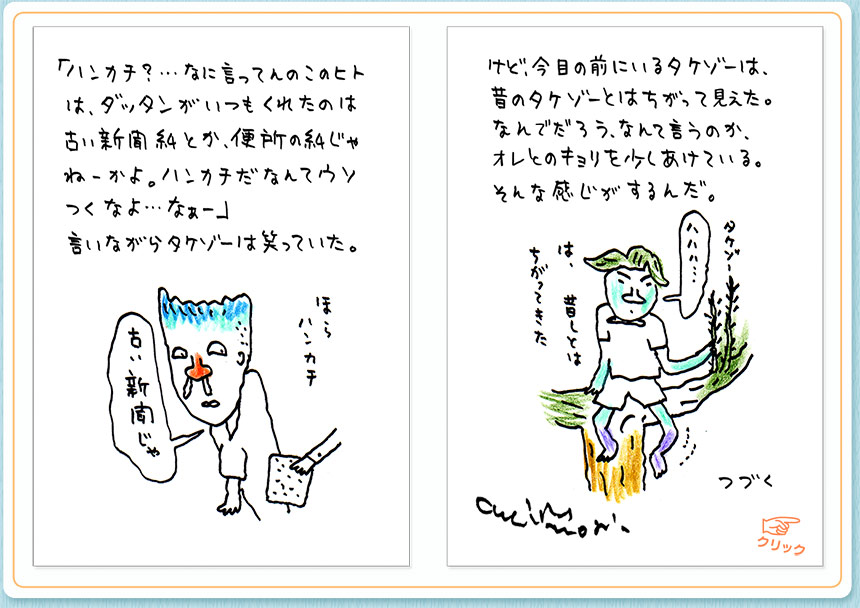 「ハンカチ？…なに言ってんのこのヒト
は、ダッタンがいつもくれたのは
古い新聞紙とか、便所の紙じゃ
ねーかよ。ハンカチだなんてウソ
つくなよ…なぁー」
言いながらタケゾーは笑っていた。
ほら
ハンカチ
古い新聞じゃ
けど、今目の前にいるタケゾーは、
昔のタケゾーとはちがって見えた。
なんでだろう、なんて言うのか、
オレとのキョリを少しあけている。
そんな感じがするんだ。
タケゾー
ハハハ…
は、昔しとは
ちがってきた
つづく
クリック